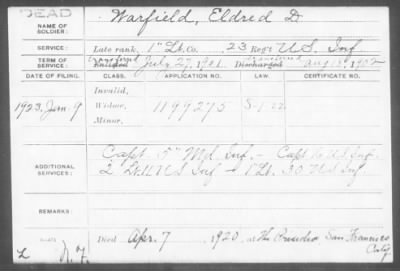 DEAD
NAME OF SOLDIER: Warfield, Eldred D.
SERVICE: Late rank, 1" Lt, Co. 23 Reg't U.S. Inf
TERM OF SERVICE: transferred Enlisted July 27, 1901 Discharged transferred Aug 1902
DATE OF FILING. CLASS. APPLICATION NO. LAW. CERTIFICATE NO.
Invalid,
1923, Jan. 9 Widow, 1199275 S-1-22
Minor,
ADDITIONAL SERVICES: Capt 5" Md. Inf. - Capt U.S. Inf.
2 Lt. 11 U S Inf - 1" Lt. 30 U S Inf
REMARKS:
Died Apr. 7, 1920, at The Presidio San Francisco
Calif